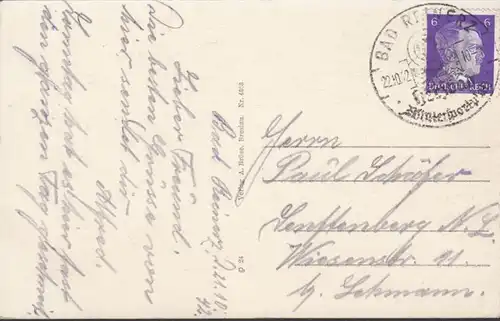 Bad Reinerz, d. 21.10.
42.
Lieber Freund.
Die besten Grüsse von
hier sendet dir
Alfred.
Sonntag hat es hier fast
den ganzen Tag geschneit.
Verlag A. Rehm, Dresden. Nr. 4403
Q 24
BAD REINERZ
22.10.42
Wintersport
6 6
DEUTSCHES REICH
Herrn
Paul Schäfer
Senftenberg N. L.
Wiesenstr. 11.
b. Lehmann.